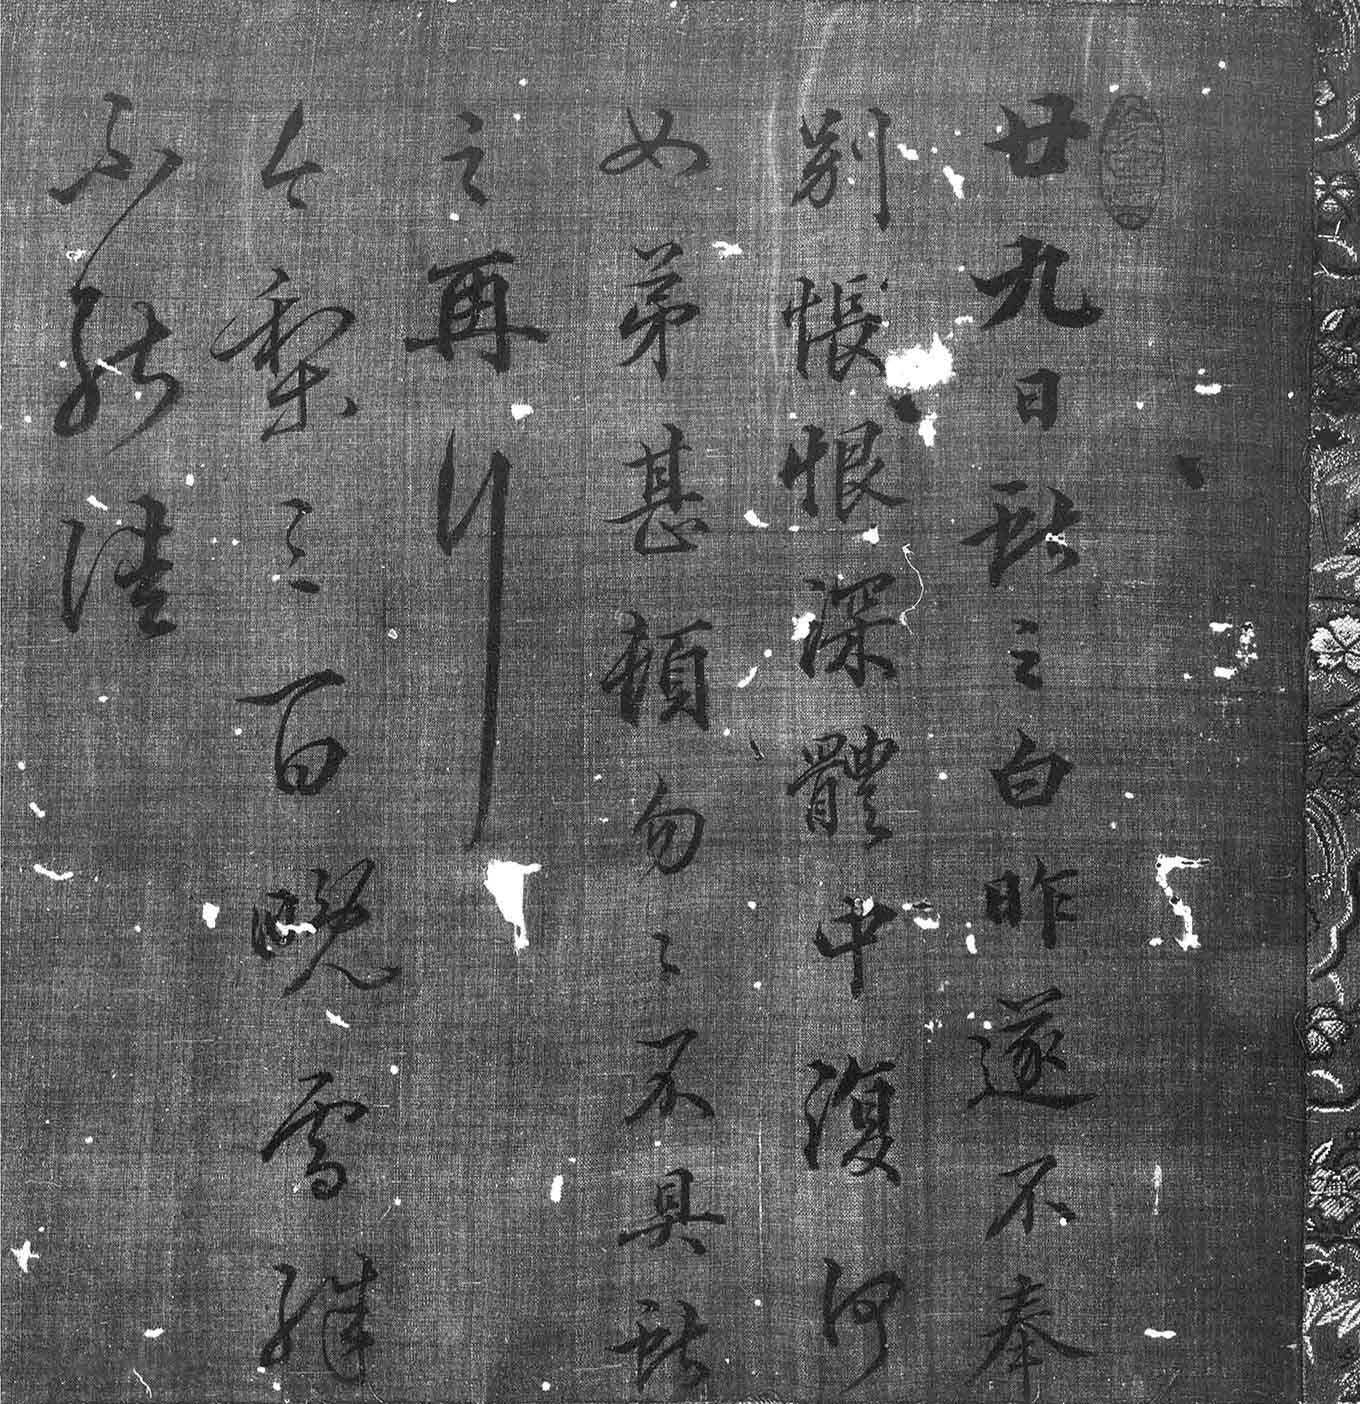 廿九日獻之白昨遂不奉
別悵恨深體中復何
如弟甚頓勿〻不具獻
之再拜
今梨三百晚雪殊
不能佳